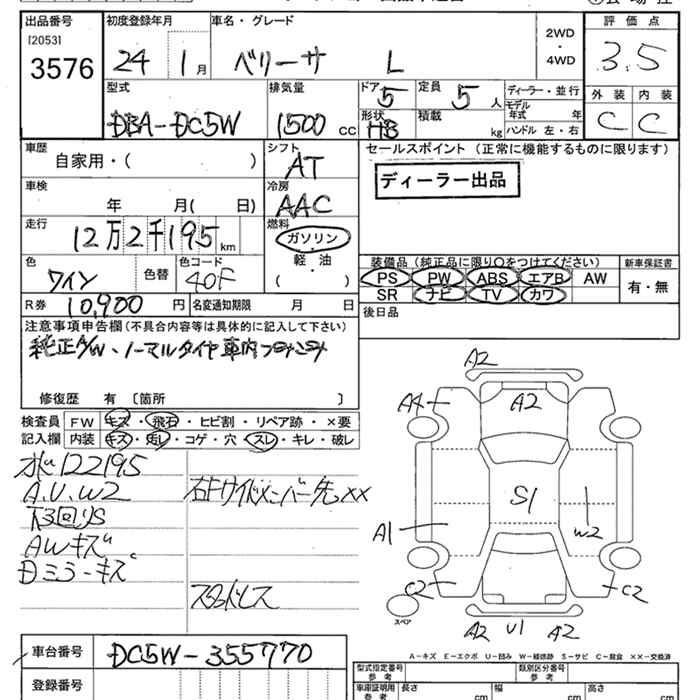 出品番号 初度登録年月 車名・グレード 2WD・4WD 評価点
[2053] 3576 24 1月 ベリーサ L 3.5
型式 排気量 ドア 5 定員 5人 ディーラー・並行 外装 内装
DBA-DC5W 1500cc 形状 HB 積載 kg モデル年式 年 ハンドル 左・右 C C
車歴 シフト セールスポイント (正常に機能するものに限ります)
自家用・( ) AT ディーラー出品
車検 冷房
年 月( 日) AAC
走行 燃料
12万2千195km ガソリン・軽油・( )
色 色替 色コード 装備品 (純正品に限り○をつけてください) 新車保証書
ワイン 40F PS PW ABS エアB AW 有・無
R券 10,900円 名変通知期限 月 日 SR ナビ TV カワ
注意事項申告欄(不具合内容等は具体的に記入して下さい) 後日品
純正A/W、ノーマルタイヤ車内
修復歴 有 〔箇所 〕
検査員 FW キズ・飛石・ヒビ割・リペア跡・×要
記入欄 内装 キズ・汚レ・コゲ・穴・スレ・キレ・破レ
122195
A.U.W2 右サイドメンバー先××
下回りS
AWキズ
Dミラーキズ
スタッドレス
A2
A4 A2
S1
A1 W2
C2 C2
スペア
A2 U1 A2
A-キズ E-エクボ U-凹み W-補修跡 S-サビ C-腐食 ××-交換済
車台番号 DC5W-355770 型式指定番号 参考 類別区分番号 参考
登録番号 車庫証明用 参考 長さ cm 幅 cm 高さ cm